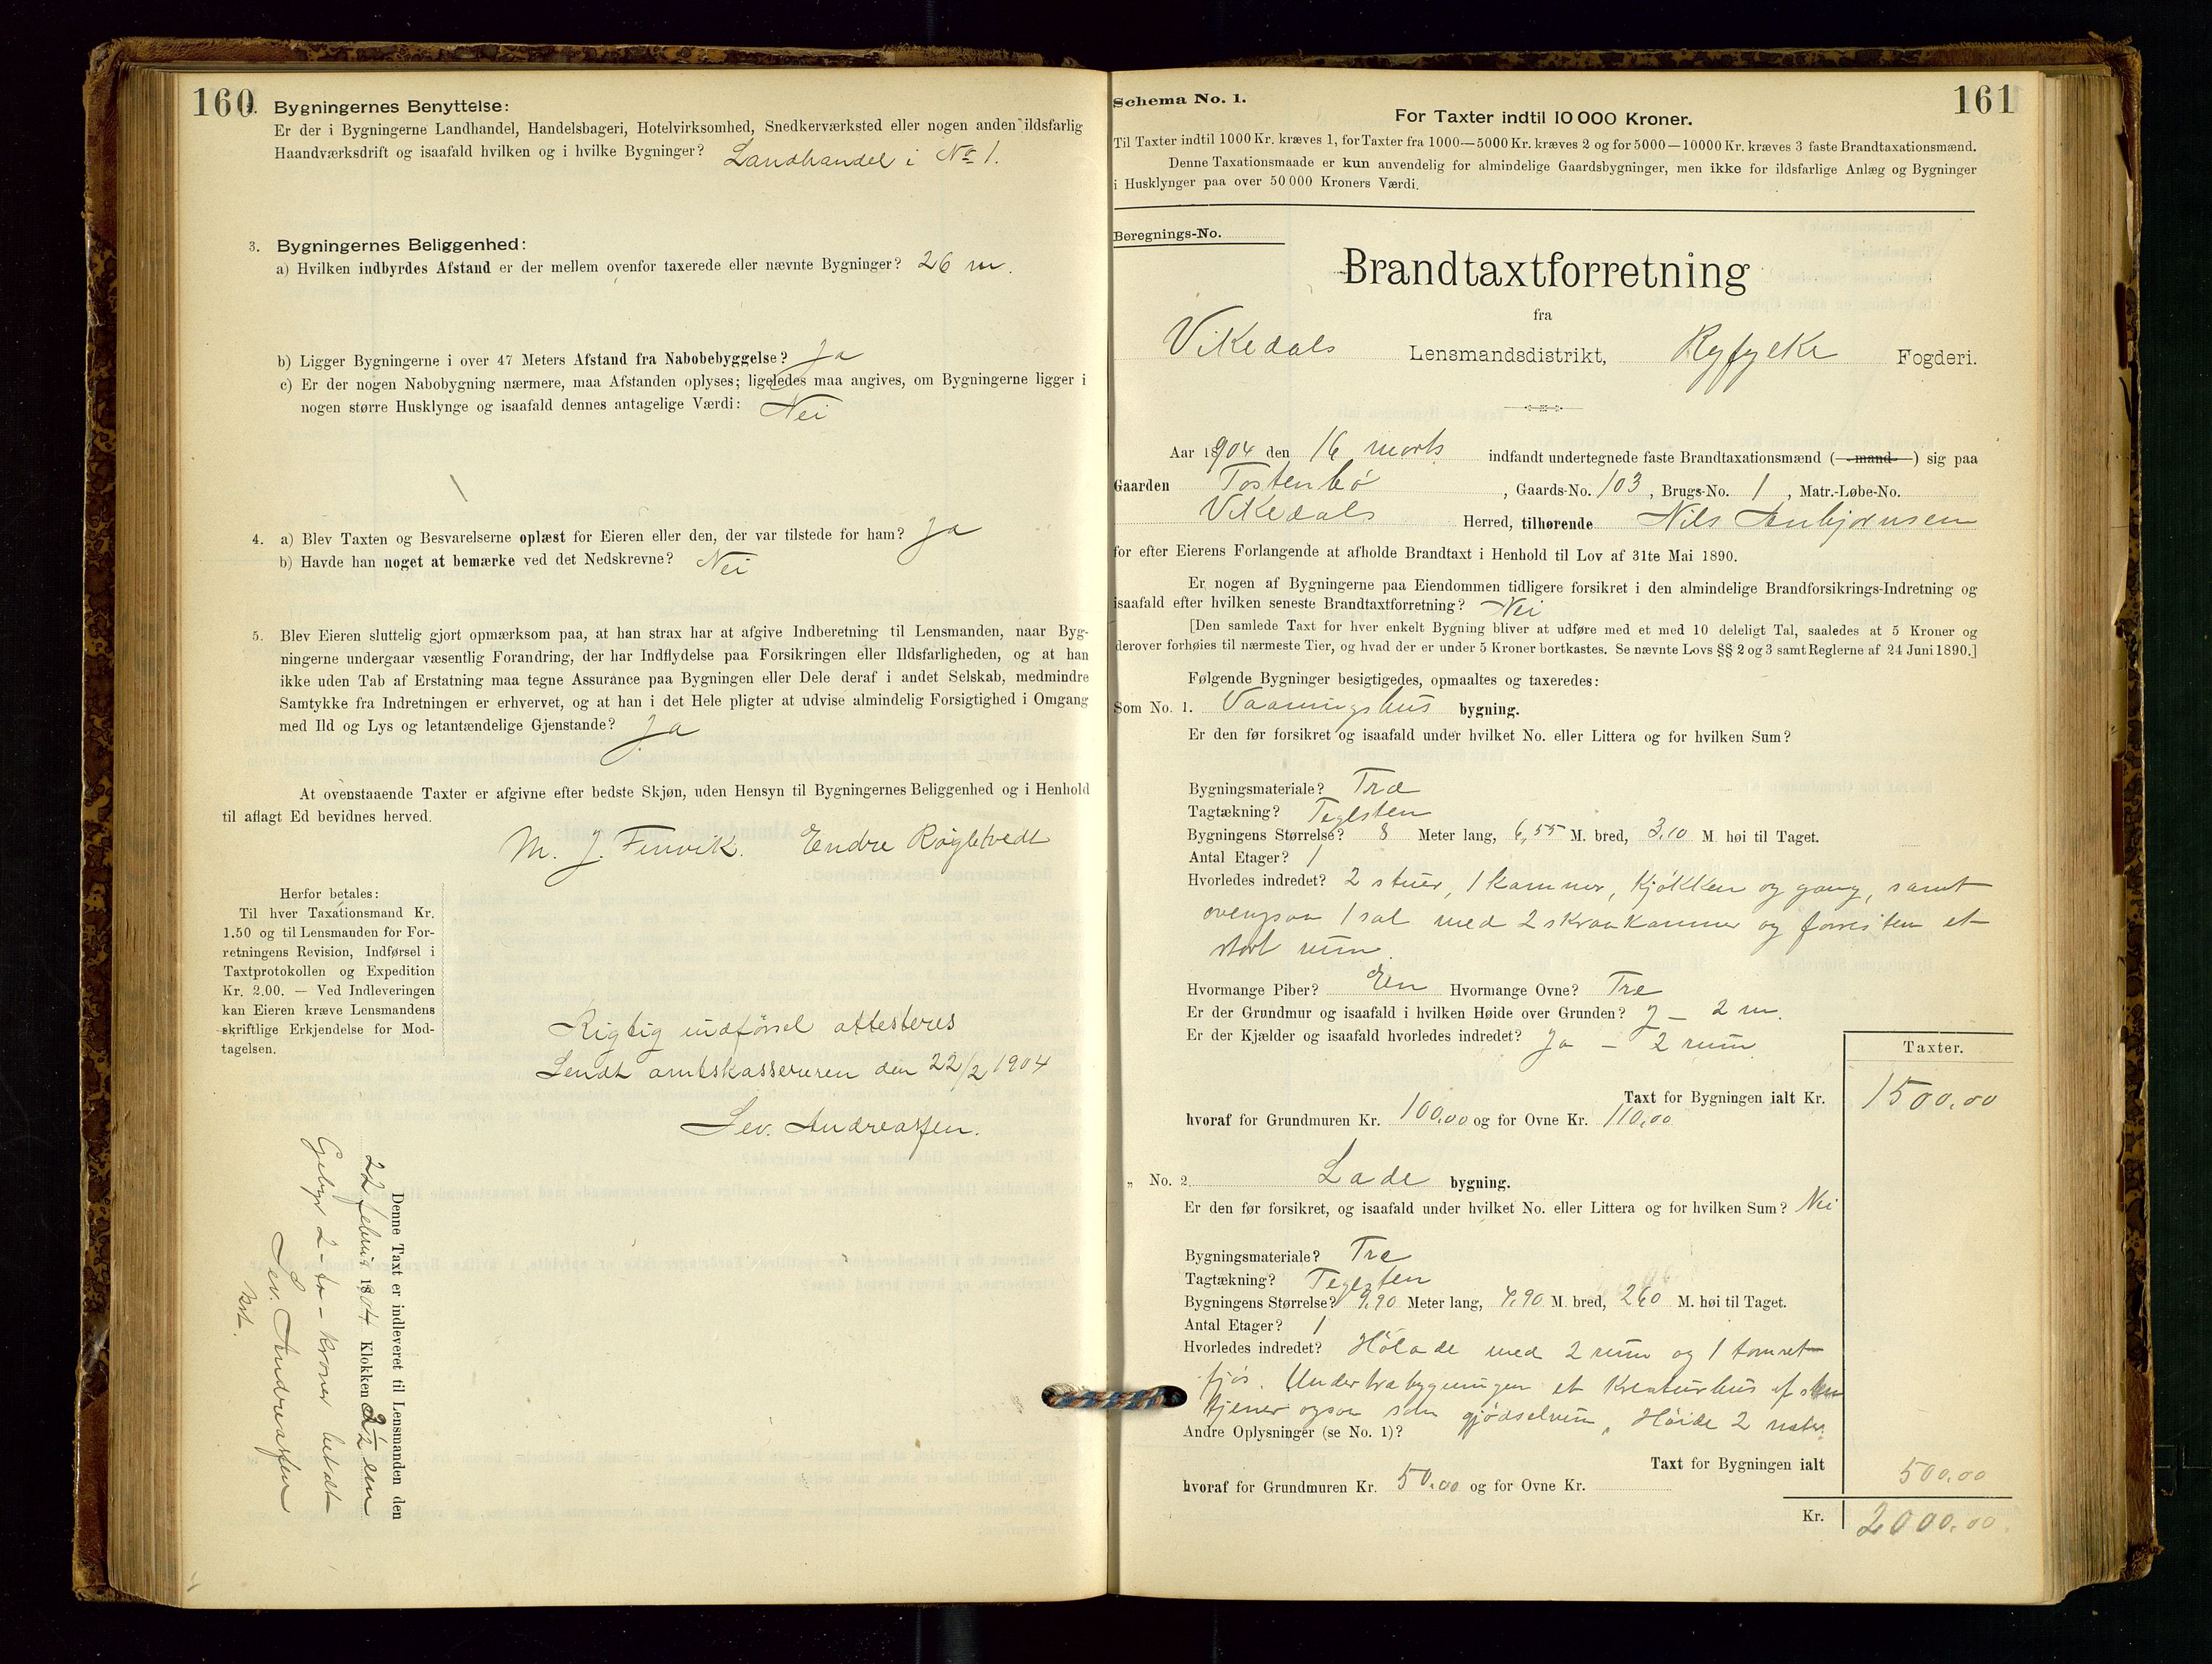 160
2. Bygningernes Benyttelse:
Er der i Bygningerne Landhandel, Handelsbageri, Hotelvirksomhed, Snedkerværksted eller nogen anden ildsfarlig
Haandværksdrift og isaafald hvilken og i hvilke Bygninger? Landhandel i No 1.
3. Bygningernes Beliggenhed:
a) Hvilken indbyrdes Afstand er der mellem ovenfor taxerede eller nævnte Bygninger? 26 m.
b) Ligger Bygningerne i over 47 Meters Afstand fra Nabobebyggelse? Ja
c) Er der nogen Nabobygning nærmere, maa Afstanden oplyses; ligeledes maa angives, om Bygningerne ligger i
nogen større Husklynge og isaafald dennes antagelige Værdi: Nei
4. a) Blev Taxten og Besvarelserne oplæst for Eieren eller den, der var tilstede for ham? Ja
b) Havde han noget at bemærke ved det Nedskrevne? Nei
5. Blev Eieren sluttelig gjort opmærksom paa, at han strax har at afgive Indberetning til Lensmanden, naar Byg-
ningerne undergaar væsentlig Forandring, der har Indflydelse paa Forsikringen eller Ildsfarligheden, og at han
ikke uden Tab af Erstatning maa tegne Assurance paa Bygningen eller Dele deraf i andet Selskab, medmindre
Samtykke fra Indretningen er erhvervet, og at han i det Hele pligter at udvise almindelig Forsigtighed i Omgang
med Ild og Lys og letantændelige Gjenstande? Ja
At ovenstaaende Taxter er afgivne efter bedste Skjøn, uden Hensyn til Bygningernes Beliggenhed og i Henhold
til aflagt Ed bevidnes herved.
M. J. Finvik. Endre
Herfor betales:
Til hver Taxationsmand Kr.
1.50 og til Lensmanden for For-
retningens Revision, Indførsel i
Taxtprotokollen og Expedition
Kr. 2.00. — Ved Indleveringen
kan Eieren kræve Lensmandens
skriftlige Erkjendelse for Mod-
tagelsen.
Rigtig indførsel attesteres
Sendt amtskassereren den 22/2 1904
Sev. Andreassen.
Denne Taxt er indleveret til Lensmanden den
22 februar 1904 Klokken 2 1/2 em
Gebyr 2 - to - kroner betalt
Sev. Andreassen
161
Schema No. 1.
For Taxter indtil 10 000 Kroner.
Til Taxter indtil 1000 Kr. kræves 1, for Taxter fra 1000—5000 Kr. kræves 2 og for 5000—10000 Kr. kræves 3 faste Brandtaxationsmænd.
Denne Taxationsmaade er kun anvendelig for almindelige Gaardsbygninger, men ikke for ildsfarlige Anlæg og Bygninger
i Husklynger paa over 50 000 Kroners Værdi.
Beregnings-No.
Brandtaxtforretning
fra
Vikedals Lensmandsdistrikt, Ryfylke Fogderi.
Aar 1904 den 16 marts indfandt undertegnede faste Brandtaxationsmænd (mand) sig paa
Gaarden Tostenbø, Gaards-No. 103, Brugs-No. 1, Matr.-Løbe-No.
Vikedals Herred, tilhørende Nils Anbjørnsen
for efter Eierens Forlangende at afholde Brandtaxt i Henhold til Lov af 31te Mai 1890.
Er nogen af Bygningerne paa Eiendommen tidligere forsikret i den almindelige Brandforsikrings-Indretning og
isaafald efter hvilken seneste Brandtaxtforretning? Nei
[Den samlede Taxt for hver enkelt Bygning bliver at udføre med et med 10 deleligt Tal, saaledes at 5 Kroner og
derover forhøies til nærmeste Tier, og hvad der er under 5 Kroner bortkastes. Se nævnte Lovs §§ 2 og 3 samt Reglerne af 24 Juni 1890.]
Følgende Bygninger besigtigedes, opmaaltes og taxeredes:
Som No. 1. Vaaningshus bygning.
Er den før forsikret og isaafald under hvilket No. eller Littera og for hvilken Sum?
Bygningsmateriale? Træ
Tagtækning? Teglsten
Bygningens Størrelse? 8 Meter lang, 6,55 M. bred, 3,10 M. høi til Taget.
Antal Etager? 1
Hvorledes indredet? 2 stuer, 1 kammer, kjøkken og gang, samt
ovenpaa 1 sal med 2 skraakammer og forresten et
stort rum.
Hvormange Piber? En Hvormange Ovne? Tre
Er der Grundmur og isaafald i hvilken Høide over Grunden? J — 2 m.
Er der Kjælder og isaafald hvorledes indredet? Ja — 2 rum
Taxter.
Taxt for Bygningen ialt Kr. 1500,00
hvoraf for Grundmuren Kr. 100,00 og for Ovne Kr. 110,00
„ No. 2 Lade bygning.
Er den før forsikret, og isaafald under hvilket No. eller Littera og for hvilken Sum? Nei
Bygningsmateriale? Træ
Tagtækning? Teglsten
Bygningens Størrelse? 9,90 Meter lang, 4,90 M. bred, 2,60 M. høi til Taget.
Antal Etager? 1
Hvorledes indredet? Hølade med 2 rum og 1 tomret
fjøs. Under træbygningen et Kreaturhus af sten
tjener ogsaa som gjødselrum. Høide 2 meter.
Andre Oplysninger (se No. 1)?
Taxt for Bygningen ialt 500,00
hvoraf for Grundmuren Kr. 50,00 og for Ovne Kr.
Kr. 2000,00